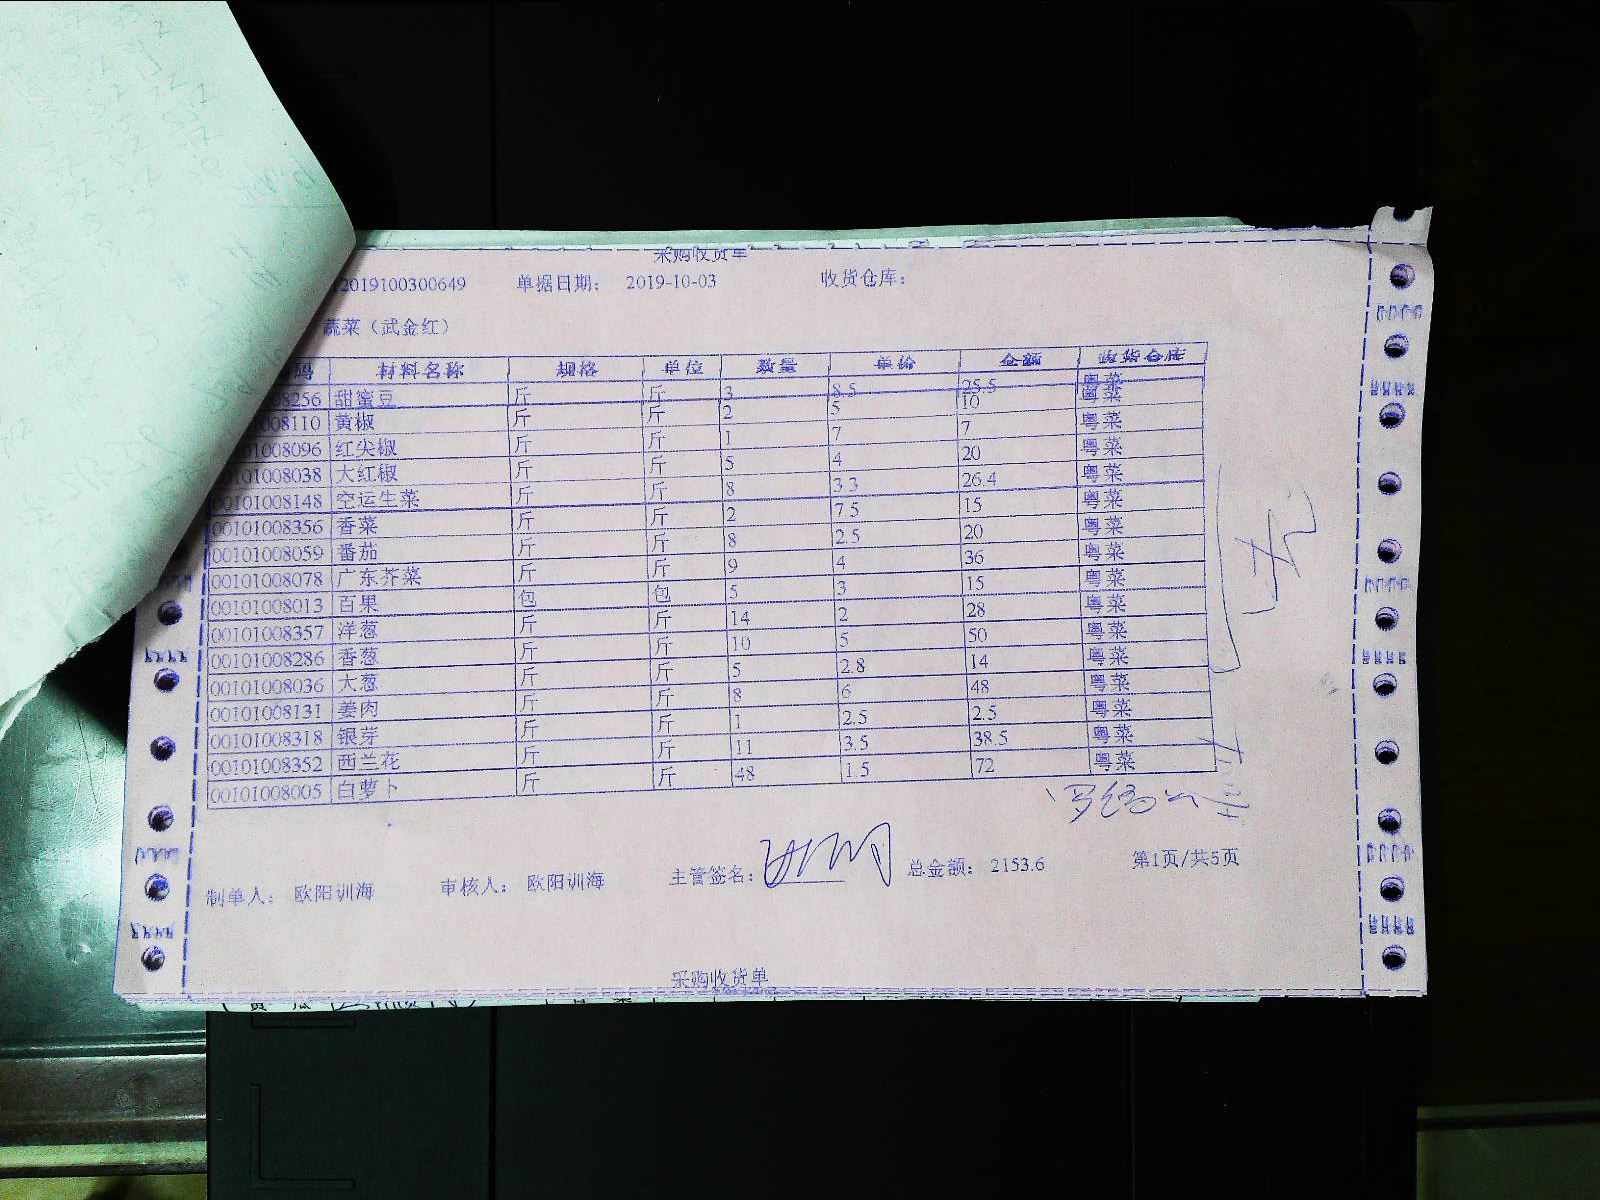 采购收货单
2019100300649 单据日期： 2019-10-03 收货仓库：
蔬菜（武金红）
码 材料名称 规格 单位 数量 单价 金额 收货仓库
08256 甜蜜豆 斤 斤 3 8.5 25.5 粤菜
008110 黄椒 斤 斤 2 5 10 粤菜
01008096 红尖椒 斤 斤 1 7 7 粤菜
0101008038 大红椒 斤 斤 5 4 20 粤菜
00101008148 空运生菜 斤 斤 8 3.3 26.4 粤菜
00101008356 香菜 斤 斤 2 7.5 15 粤菜
00101008059 番茄 斤 斤 8 2.5 20 粤菜
00101008078 广东芥菜 斤 斤 9 4 36 粤菜
00101008013 百果 包 包 5 3 15 粤菜
00101008357 洋葱 斤 斤 14 2 28 粤菜
00101008286 香葱 斤 斤 10 5 50 粤菜
00101008036 大葱 斤 斤 5 2.8 14 粤菜
00101008131 姜肉 斤 斤 8 6 48 粤菜
00101008318 银芽 斤 斤 1 2.5 2.5 粤菜
00101008352 西兰花 斤 斤 11 3.5 38.5 粤菜
00101008005 白萝卜 斤 斤 48 1.5 72 粤菜
制单人： 欧阳训海 审核人： 欧阳训海 主管签名： 总金额： 2153.6 第1页/共5页
采购收货单